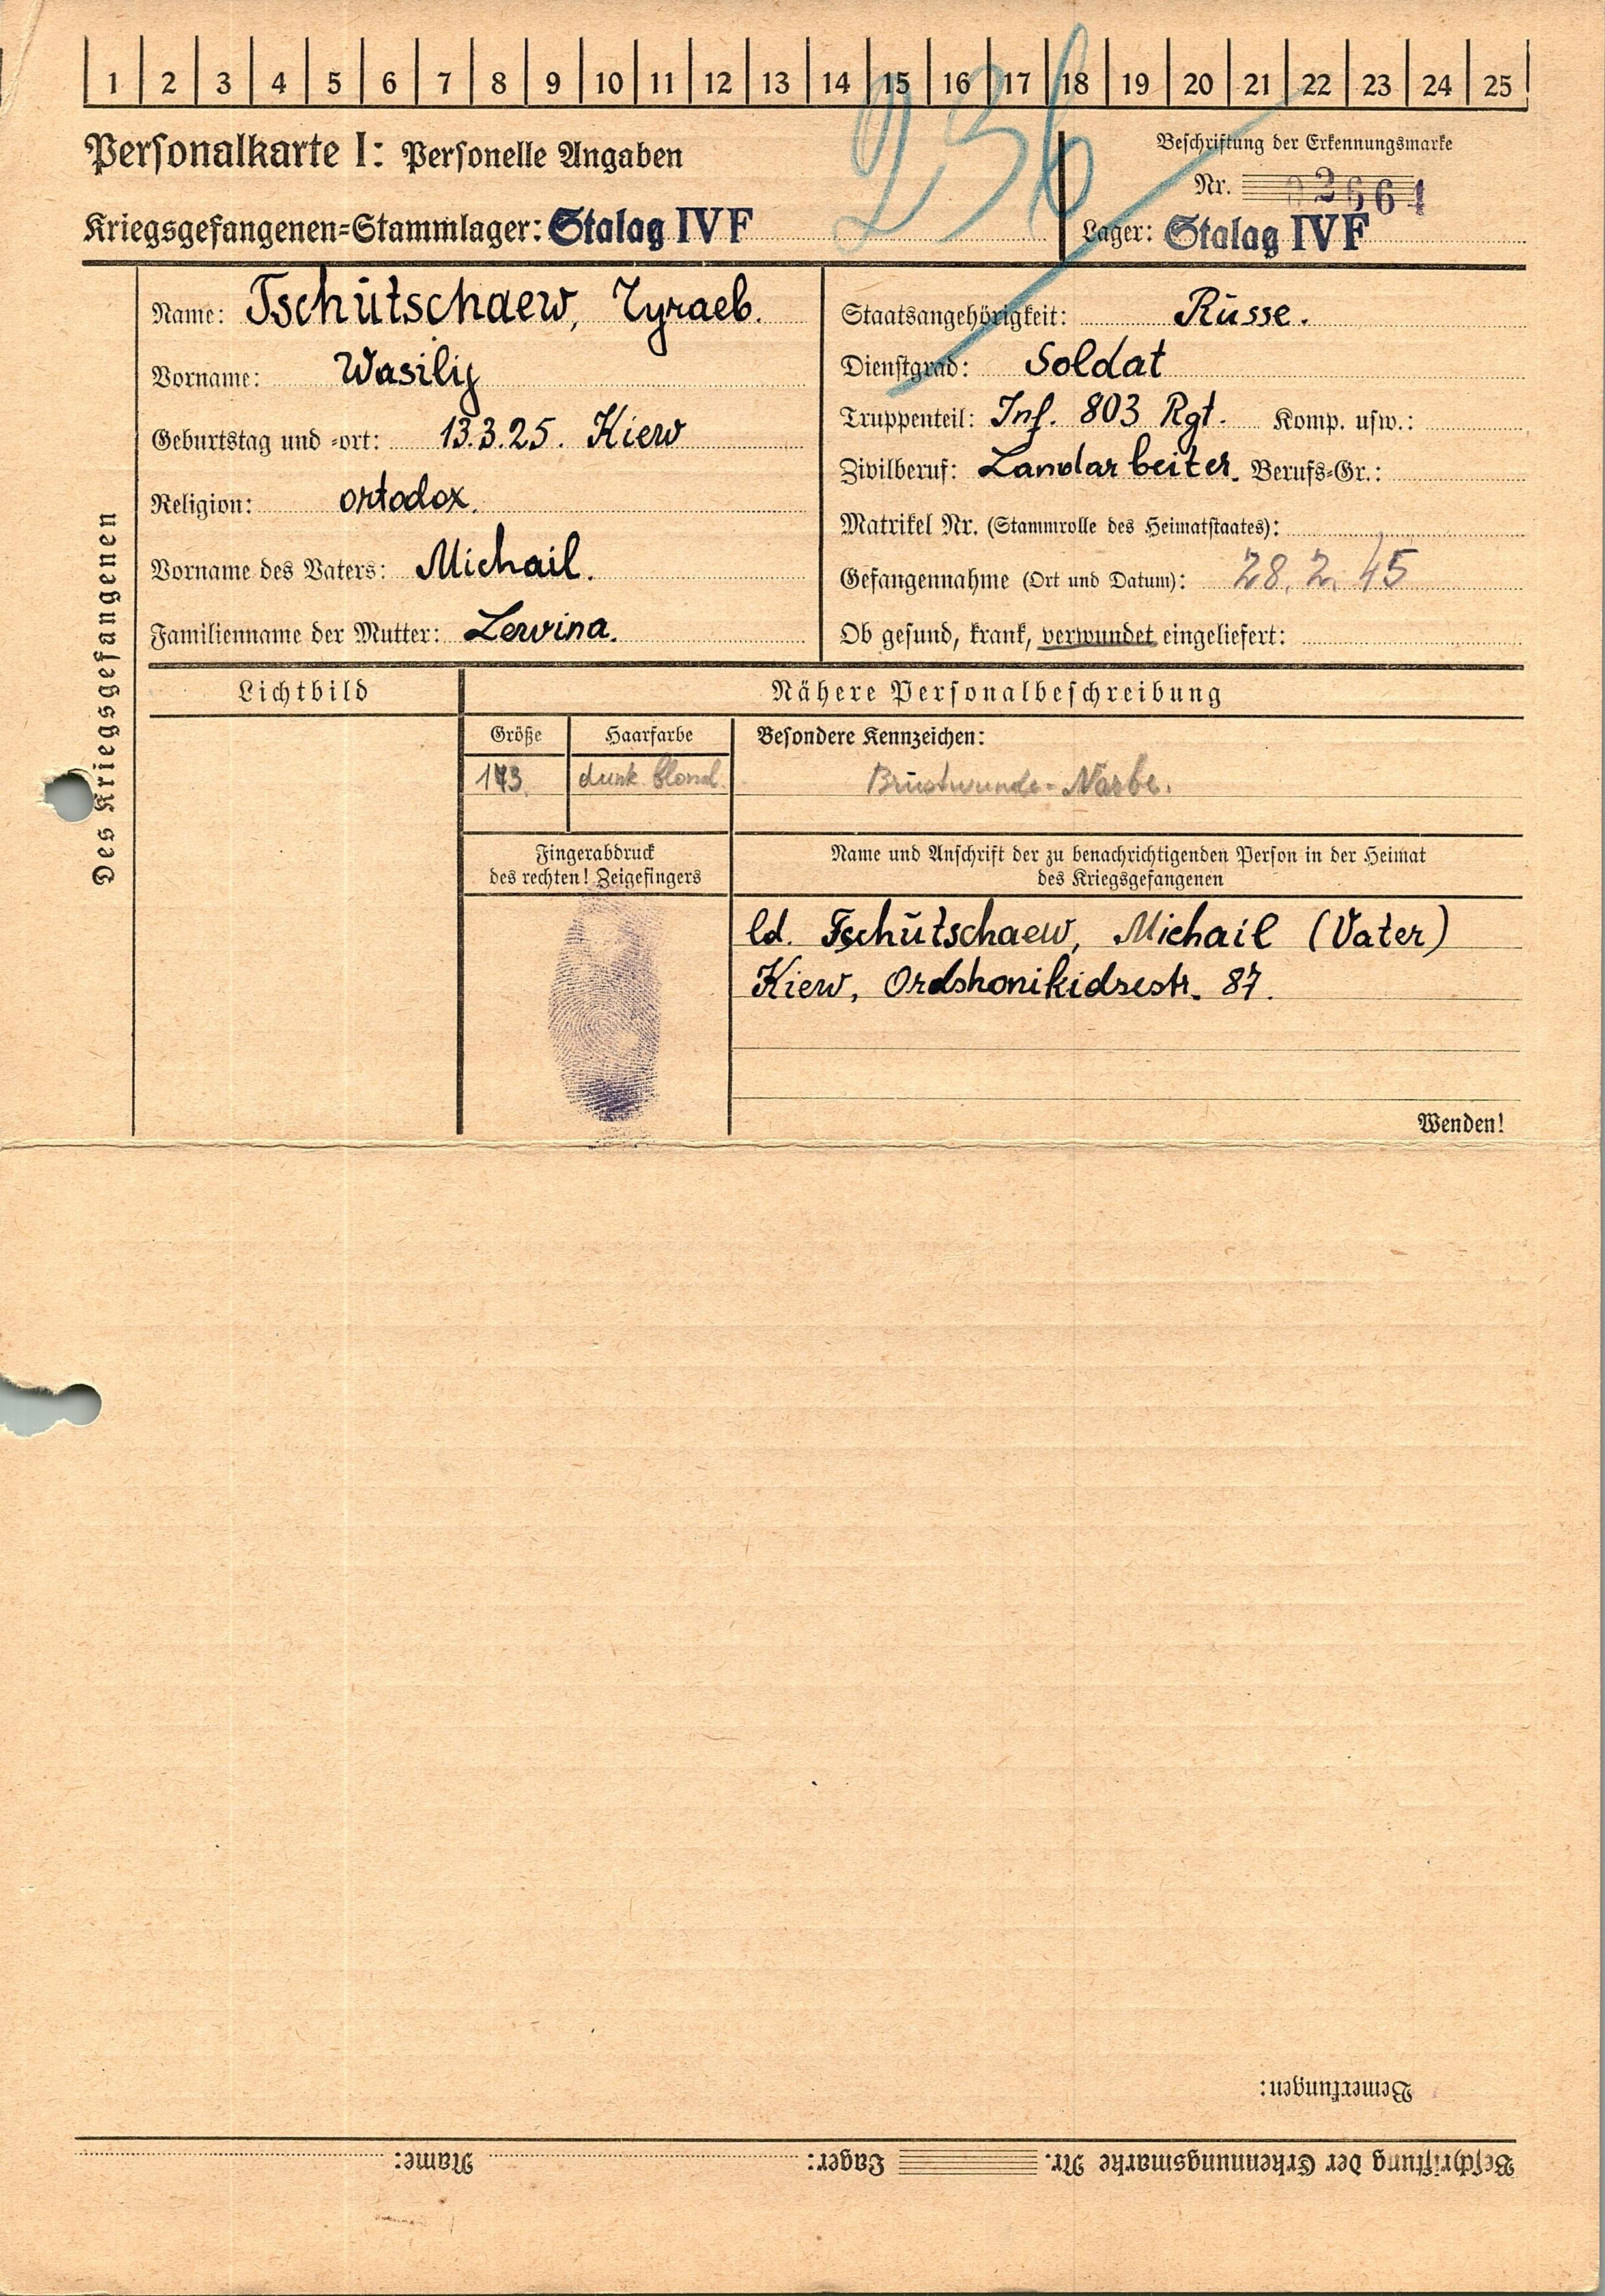 1 2 3 4 5 6 7 8 9 10 11 12 13 14 15 16 17 18 19 20 21 22 23 24 25
236
Personalkarte I: Personelle Angaben
Beschriftung der Erkennungsmarke
Nr. 02661
Kriegsgefangenen-Stammlager: Stalag IV F
Lager: Stalag IV F
Des Kriegsgefangenen
Name: Tschutschaew,
Vorname: Wasilij
Geburtstag und -ort: 13.3.25. Kiew
Religion: ortodox.
Vorname des Vaters: Michail.
Familienname der Mutter: Lewina.
Staatsangehörigkeit: Russe.
Dienstgrad: Soldat
Truppenteil: Inf. 803 Rgt. Komp. usw.:
Zivilberuf: Landarbeiter. Berufs-Gr.:
Matrikel Nr. (Stammrolle des Heimatstaates):
Gefangennahme (Ort und Datum): 28. 2. 45
Ob gesund, krank, verwundet eingeliefert:
Lichtbild
Nähere Personalbeschreibung
Größe
Haarfarbe
Besondere Kennzeichen:
173.
dunk. blond.
Brustwunde-Narbe.
Fingerabdruck
des rechten! Zeigefingers
Name und Anschrift der zu benachrichtigenden Person in der Heimat
des Kriegsgefangenen
Tschutschaew, Michail (Vater)
Kiew, Ordshonikidsestr. 87.
Wenden!
Bemerkungen:
Beschriftung der Erkennungsmarke Nr. Lager: Name: